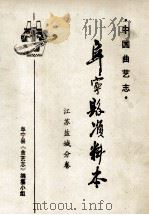 中国曲艺志·
江苏盐城分卷
阜宁县资料本
阜宁县《曲艺志》编纂小组